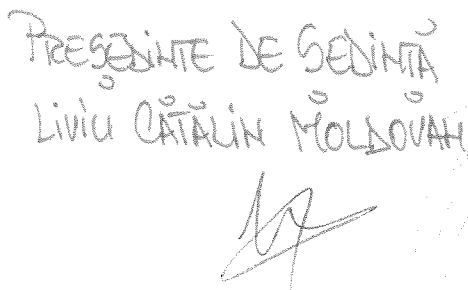 PREȘEDINTE DE ȘEDINȚĂ
LIVIU CĂTĂLIN MOLDOVAN